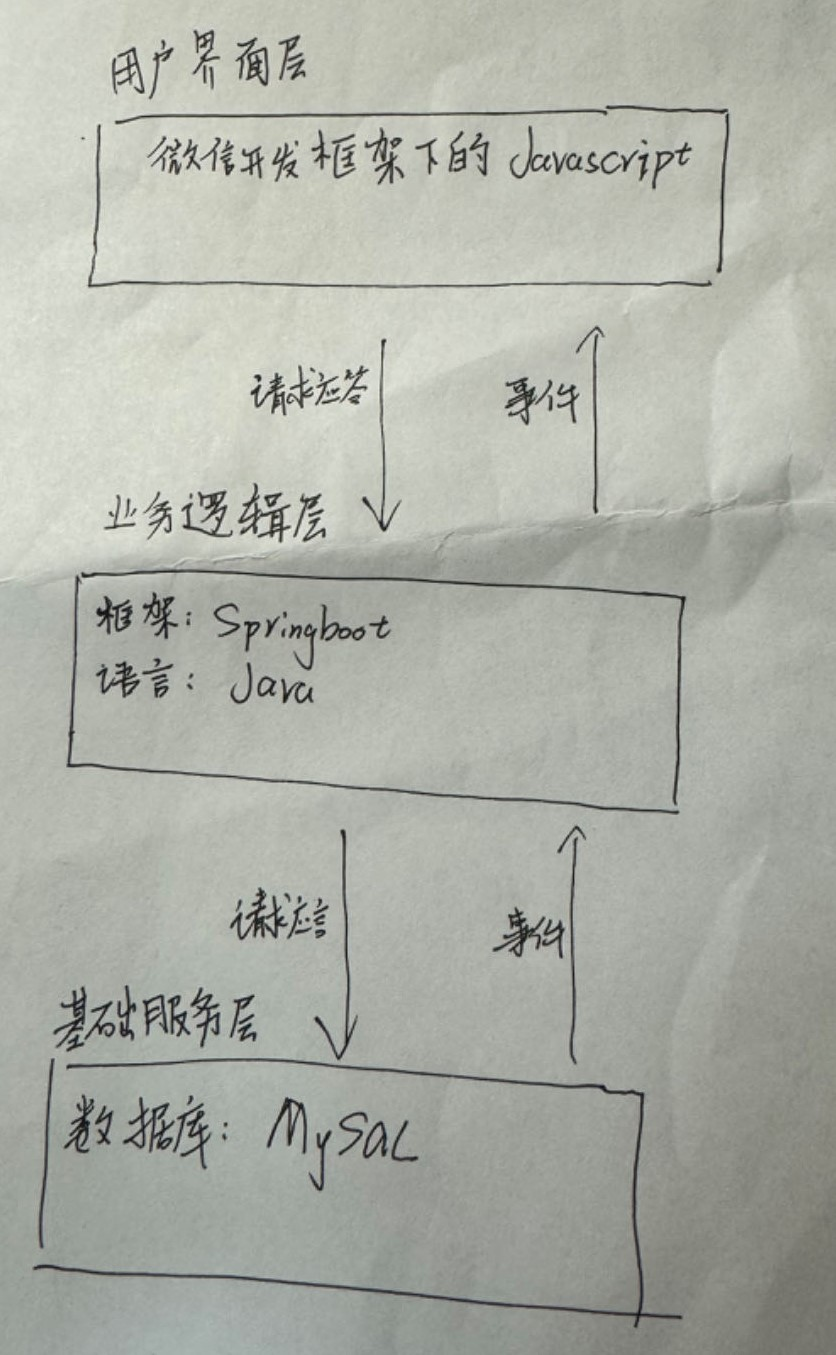 用户界面层
微信开发框架下的 Javascript
请求应答
事件
业务逻辑层
框架: Springboot
语言: Java
请求应答
事件
基础服务层
数据库: MySQL